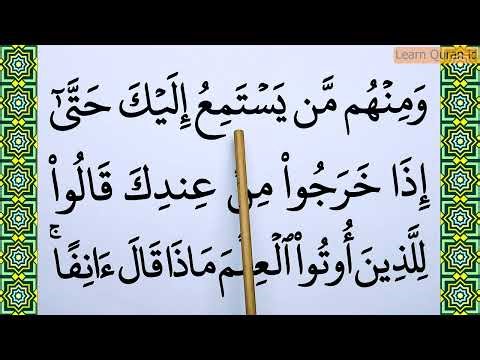 Learn Quran id
وَمِنۡهُم مَّن يَسۡتَمِعُ إِلَيۡكَ حَتَّىٰٓ
إِذَا خَرَجُواْ مِنۡ عِندِكَ قَالُواْ
لِلَّذِينَ أُوتُواْ ٱلۡعِلۡمَ مَاذَا قَالَ ءَانِفًاۚ